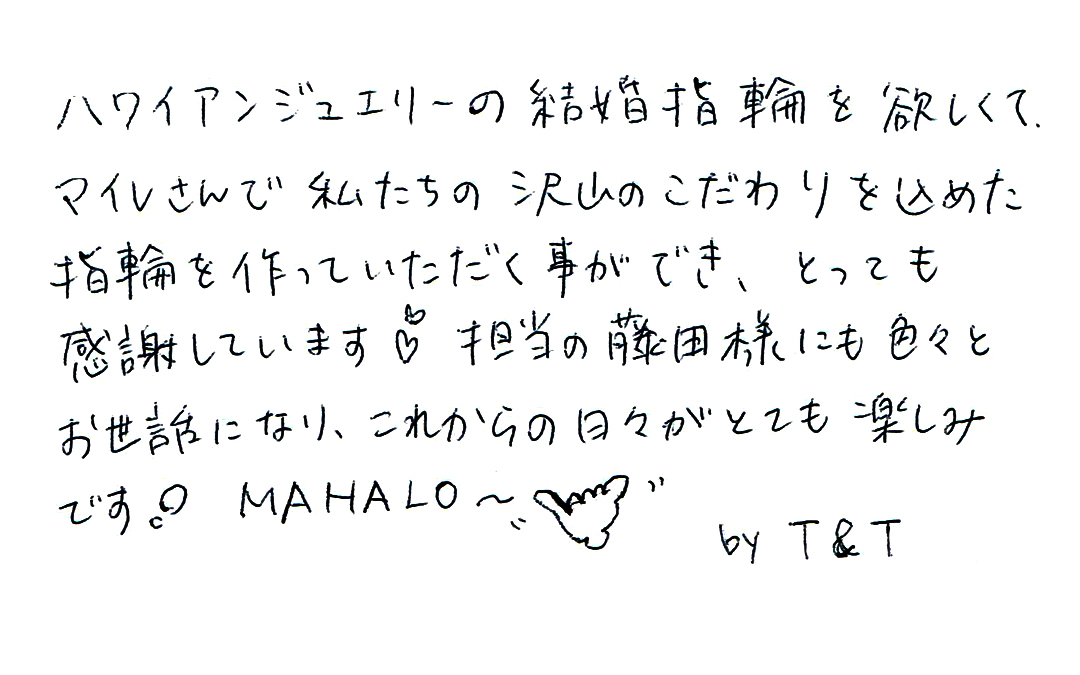 ハワイアンジュエリーの結婚指輪を欲しくて、
マイレさんで私たちの沢山のこだわりを込めた
指輪を作っていただく事ができ、とっても
感謝しています♡ 担当の藤田様にも色々と
お世話になり、これからの日々がとても楽しみ
です。 MAHALO～
by T&T